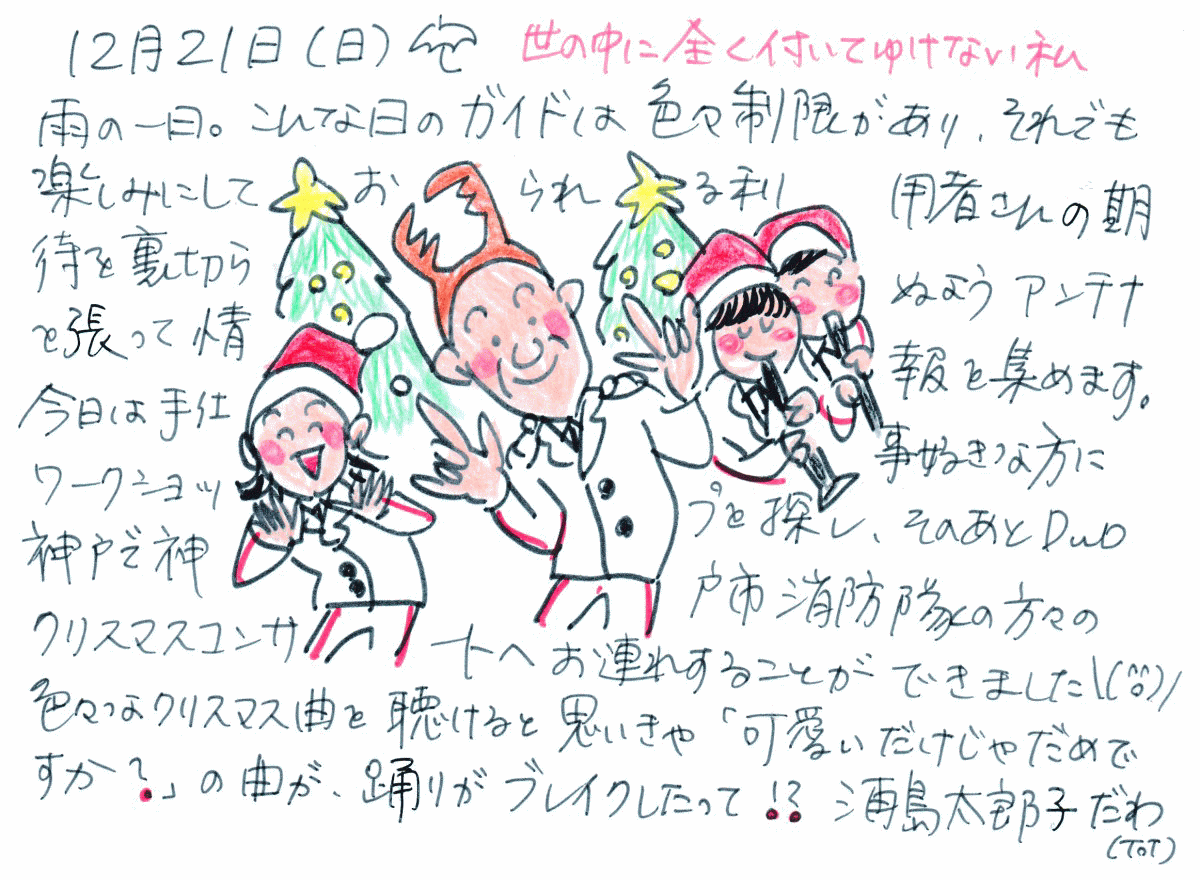 12月21日(日) 世の中に全く付いてゆけない私
雨の一日。こんな日のガイドは色々制限があり、それでも
楽しみにしておられる利用者さんの期
待を裏切らぬようアンテナ
を張って情報を集めます。
今日は手仕事好きな方に
ワークショップを探し、そのあとDuo
神戸で神戸市消防隊の方々の
クリスマスコンサートへお連れすることができました\(^o^)/
色々なクリスマス曲を聴けると思いきや「可愛いだけじゃだめで
すか?」の曲が、踊りがブレイクしたって!? 浦島太郎子だわ
(ToT)